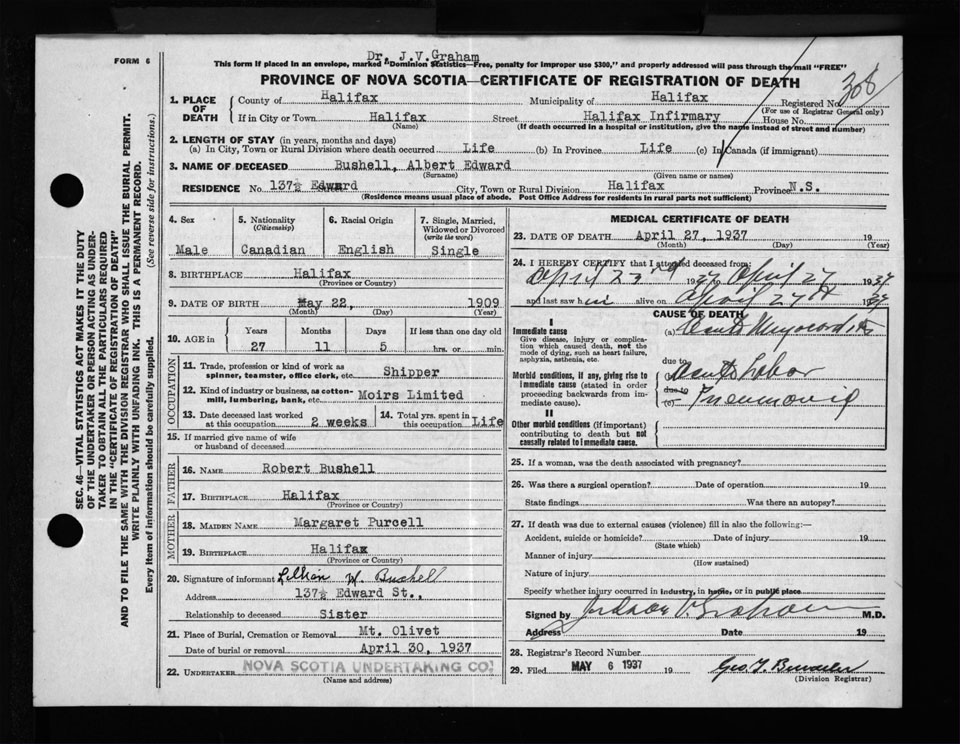 FORM 6
Dr. J.V.Graham
This form if placed in an envelope, marked "Dominion Statistics—Free, penalty for improper use $300," and properly addressed will pass through the mail "FREE"
PROVINCE OF NOVA SCOTIA—CERTIFICATE OF REGISTRATION OF DEATH
308
1. PLACE OF DEATH County of Halifax Municipality of Halifax Registered No.
(For use of Registrar General only)
If in City or Town Halifax Street Halifax Infirmary House No.
(Name) (If death occurred in a hospital or institution, give the name instead of street and number)
2. LENGTH OF STAY (in years, months and days)
(a) In City, Town or Rural Division where death occurred Life (b) In Province Life (c) In Canada (if immigrant)
3. NAME OF DECEASED Bushell, Albert Edward
(Surname) (Given name or names)
RESIDENCE No. 137½ Edward City, Town or Rural Division Halifax Province N.S.
(Residence means usual place of abode. Post Office Address for residents in rural parts not sufficient)
4. Sex Male
5. Nationality (Citizenship) Canadian
6. Racial Origin English
7. Single, Married, Widowed or Divorced (write the word) Single
8. BIRTHPLACE Halifax
(Province or Country)
9. DATE OF BIRTH May 22, 1909
(Month) (Day) (Year)
10. AGE in Years Months Days If less than one day old
27 11 5 hrs. or min.
OCCUPATION
11. Trade, profession or kind of work as spinner, teamster, office clerk, etc. Shipper
12. Kind of industry or business, as cotton-mill, lumbering, bank, etc. Moirs Limited
13. Date deceased last worked at this occupation 2 weeks
14. Total yrs. spent in this occupation Life
15. If married give name of wife or husband of deceased
FATHER
16. NAME Robert Bushell
17. BIRTHPLACE Halifax
(Province or Country)
MOTHER
18. MAIDEN NAME Margaret Purcell
19. BIRTHPLACE Halifax
(Province or Country)
20. Signature of informant Lillian W. Bushell
Address 137½ Edward St.,
Relationship to deceased Sister
21. Place of Burial, Cremation or Removal Mt. Olivet
Date of burial or removal April 30, 1937
22. UNDERTAKER NOVA SCOTIA UNDERTAKING CO.
(Name and address)
MEDICAL CERTIFICATE OF DEATH
23. DATE OF DEATH April 27, 1937 19
(Month) (Day) (Year)
24. I HEREBY CERTIFY that I attended deceased from:
April 23rd 1937 to April 27 1937
and last saw him alive on April 27th 1937
CAUSE OF DEATH
I
Immediate cause
Give disease, injury or complication which caused death, not the mode of dying, such as heart failure, asphyxia, asthenia, etc.
(a) Acute Myocarditis
due to
Morbid conditions, if any, giving rise to immediate cause (stated in order proceeding backwards from immediate cause).
(b) Acute Lobar
due to
(c) Pneumonia
II
Other morbid conditions (if important) contributing to death but not causally related to immediate cause.
25. If a woman, was the death associated with pregnancy?
26. Was there a surgical operation? Date of operation 19
State findings Was there an autopsy?
27. If death was due to external causes (violence) fill in also the following:—
Accident, suicide or homicide? Date of injury 19
(State which)
Manner of injury
(How sustained)
Nature of injury
Specify whether injury occurred in industry, in home, or in public place
Signed by V. Graham M.D.
Address Date 19
28. Registrar's Record Number
29. Filed MAY 6 1937 19
(Division Registrar)
SEC. 46—VITAL STATISTICS ACT MAKES IT THE DUTY
OF THE UNDERTAKER OR PERSON ACTING AS UNDERTAKER TO OBTAIN ALL THE PARTICULARS REQUIRED
IN THE "CERTIFICATE OF REGISTRATION OF DEATH"
AND TO FILE THE SAME WITH THE DIVISION REGISTRAR WHO SHALL ISSUE THE BURIAL PERMIT.
WRITE PLAINLY WITH UNFADING INK. THIS IS A PERMANENT RECORD.
Every item of information should be carefully supplied. (See reverse side for instructions.)